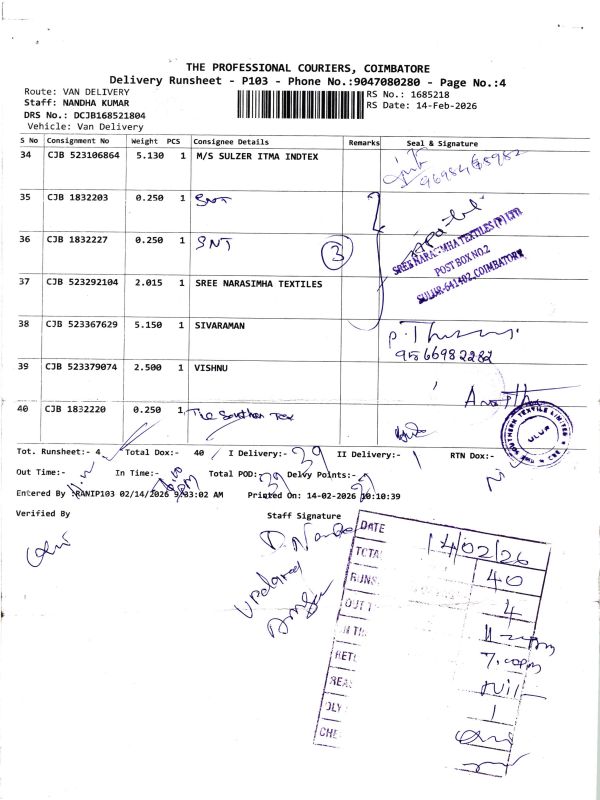 THE PROFESSIONAL COURIERS, COIMBATORE
Delivery Runsheet - P103 - Phone No.:9047080280 - Page No.:4
Route: VAN DELIVERY
Staff: NANDHA KUMAR
DRS No.: DCJB168521804
Vehicle: Van Delivery
RS No.: 1685218
RS Date: 14-Feb-2026
S No Consignment No Weight PCS Consignee Details Remarks Seal & Signature
34 CJB 523106864 5.130 1 M/S SULZER ITMA INDTEX
35 CJB 1832203 0.250 1 SNT
36 CJB 1832227 0.250 1 SNT 3
SREE NARASIMHA TEXTILES (P) LTD
POST BOX NO.2
SULUR-641402, COIMBATORE
37 CJB 523292104 2.015 1 SREE NARASIMHA TEXTILES
38 CJB 523367629 5.150 1 SIVARAMAN
9566982282
39 CJB 523379074 2.500 1 VISHNU
40 CJB 1832220 0.250 1 The Southern Tex
THE SOUTHERN TEXTILE LIMITED
SULUR
Tot. Runsheet:- 4 Total Dox:- 40 I Delivery:- 39 II Delivery:- 1 RTN Dox:-
Out Time:- In Time:- Total POD: 39 Delvy Points:-
Entered By :RANIP103 02/14/2026 9:03:02 AM Printed On: 14-02-2026 10:10:39
Verified By Staff Signature
Updated
DATE 14/02/26
TOTA 40
RUNS 4
OUT T
IN TI
RETU 7.00pm
REA Nil
DLY 1
CHE